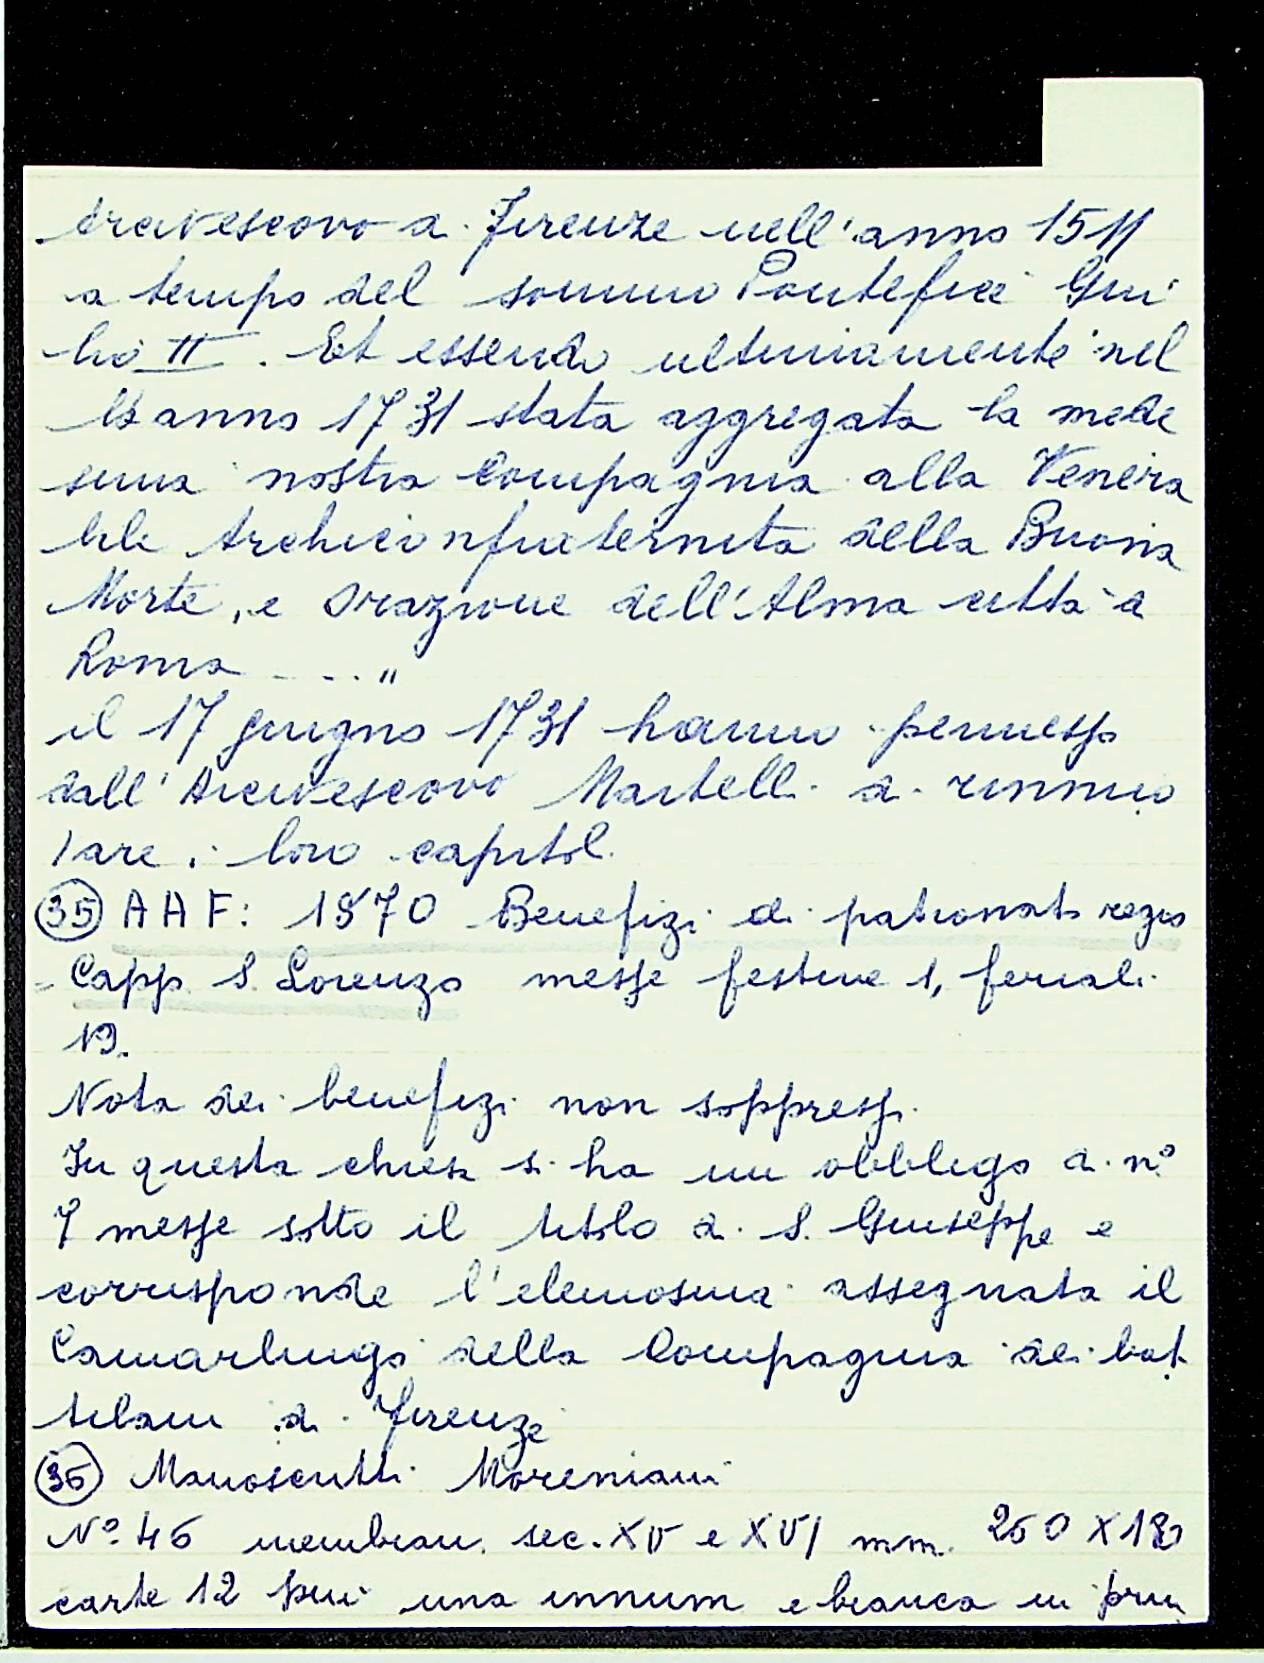 Arcivescovo di Firenze nell'anno 1511
a tempo del sommo Pontefice Giu
lio II. Et essendo ultimamente nel
l'anno 1731 stata aggregata la mede
sima nostra Compagnia alla Venera
bile Archiconfraternita della Buona
Morte, e Orazione dell'Alma città di
Roma ...."
il 17 giugno 1731 hanno permesso
dall'Arcivescovo Martelli di rinno
vare i loro capitoli.
35 AAF: 1870 Benefizi di patronato regio
- Capp. S. Lorenzo messe festive 1, feriali
19.
Nota dei benefizi non soppressi.
In questa chiesa si ha un obbligo di n.°
7 messe sotto il titolo di S. Giuseppe e
corrisponde l'elemosina assegnata il
Camarlingo della Compagnia dei bat
tilani di Firenze
36 Manoscritti Moreniani
N° 46 membran. sec. XV e XVI mm.
carte 12 più una innum e bianca in prin